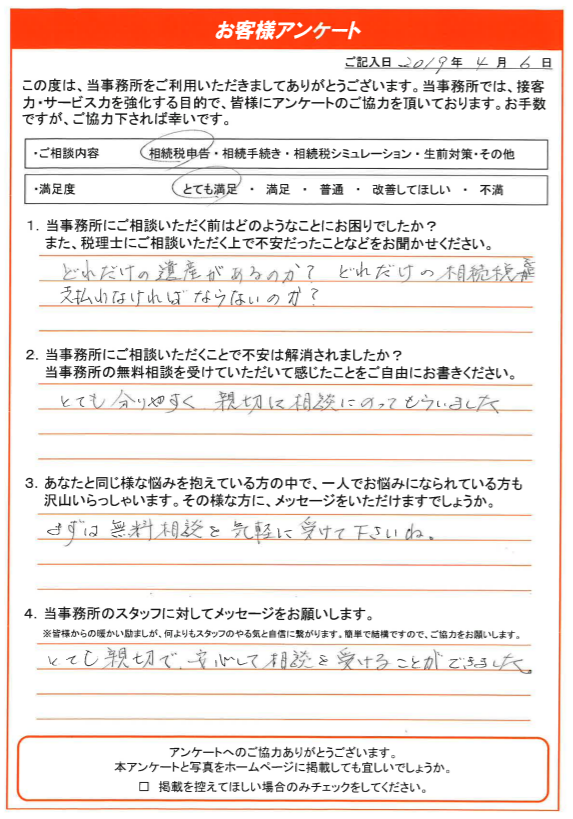 お客様アンケート
ご記入日 2019 年 4 月 6 日
この度は、当事務所をご利用いただきましてありがとうございます。当事務所では、接客
力・サービス力を強化する目的で、皆様にアンケートのご協力を頂いております。お手数
ですが、ご協力下されば幸いです。
・ご相談内容 相続税申告・相続手続き・相続税シミュレーション・生前対策・その他
・満足度 とても満足 ・ 満足 ・ 普通 ・ 改善してほしい ・ 不満
1. 当事務所にご相談いただく前はどのようなことにお困りでしたか?
また、税理士にご相談いただく上で不安だったことなどをお聞かせください。
どれだけの遺産があるのか? どれだけの相続税
支払わなければならないのか?
2. 当事務所にご相談いただくことで不安は解消されましたか?
当事務所の無料相談を受けていただいて感じたことをご自由にお書きください。
とても分りやすく 親切に相談にのってもらいました
3. あなたと同じ様な悩みを抱えている方の中で、一人でお悩みになられている方も
沢山いらっしゃいます。その様な方に、メッセージをいただけますでしょうか。
まずは無料相談を気軽に受けて下さいね。
4. 当事務所のスタッフに対してメッセージをお願いします。
※皆様からの暖かい励ましが、何よりもスタッフのやる気と自信に繋がります。簡単で結構ですので、ご協力をお願いします。
とても親切で、安心して相談を受けることができました。
アンケートへのご協力ありがとうございます。
本アンケートと写真をホームページに掲載しても宜しいでしょうか。
□ 掲載を控えてほしい場合のみチェックをしてください。